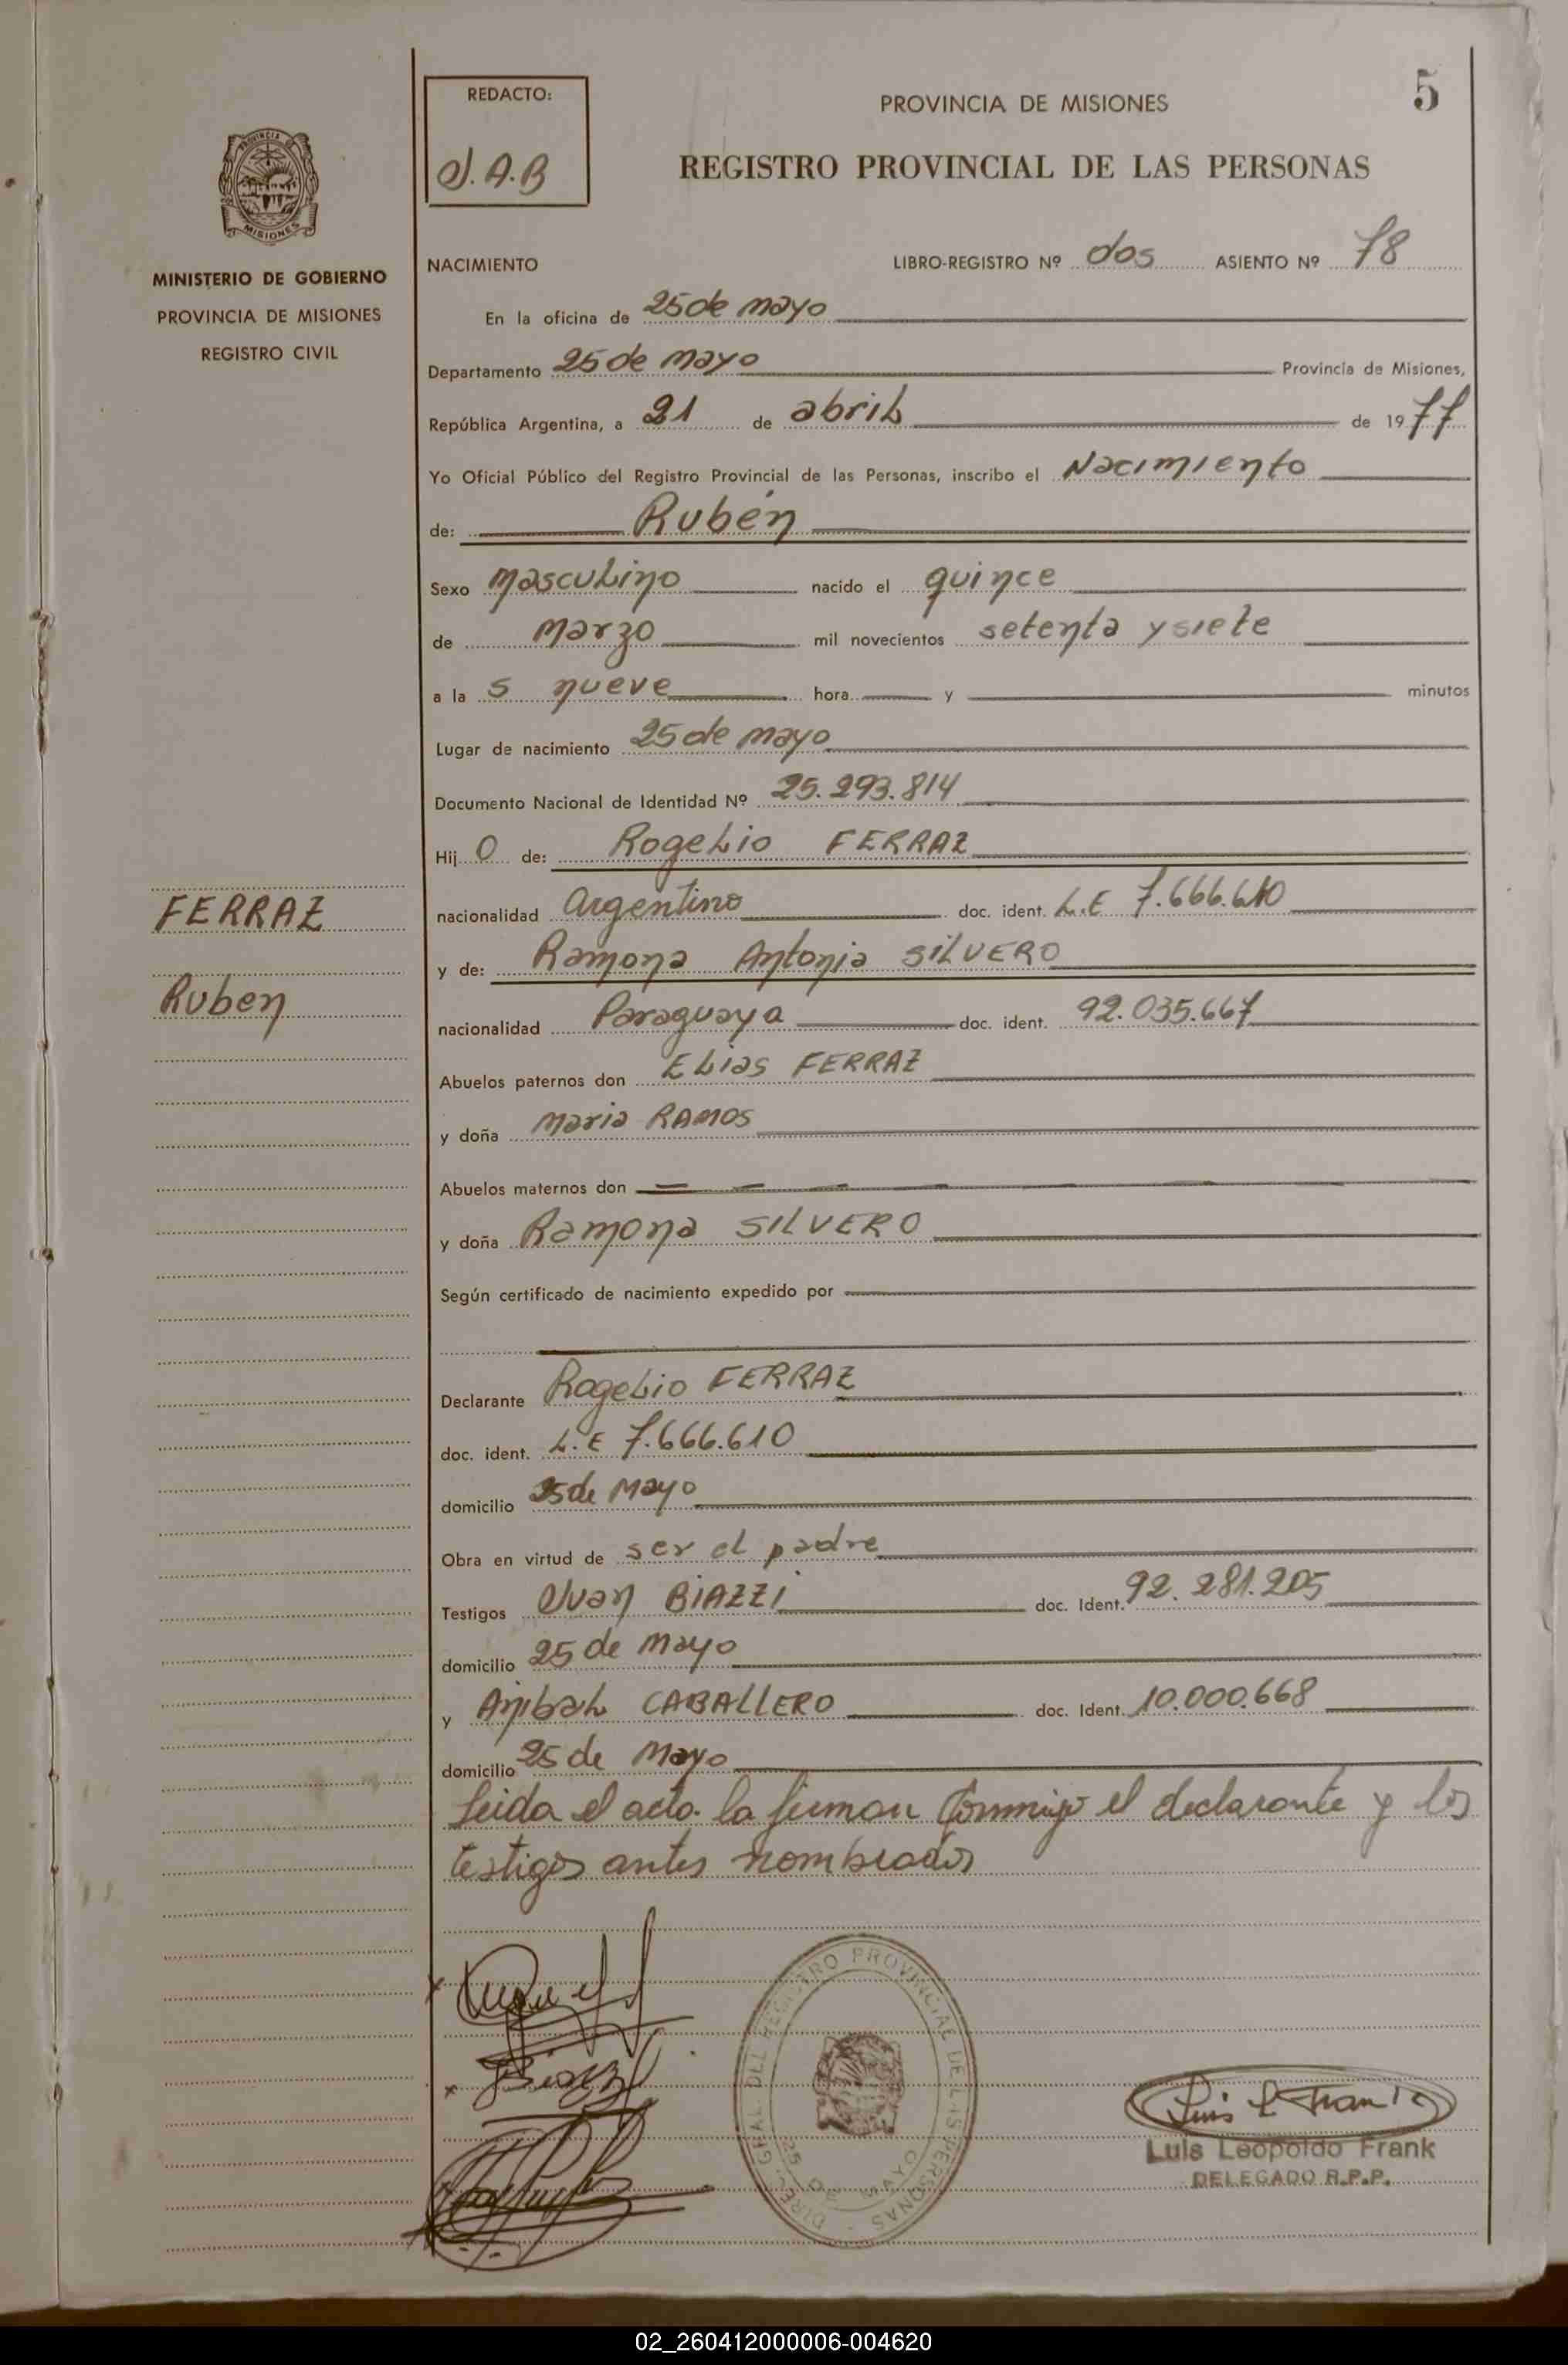 5
REDACTO:
J.A.B
PROVINCIA DE MISIONES
REGISTRO PROVINCIAL DE LAS PERSONAS
PROVINCIA DE
MISIONES
MINISTERIO DE GOBIERNO
PROVINCIA DE MISIONES
REGISTRO CIVIL
NACIMIENTO LIBRO-REGISTRO Nº dos ASIENTO Nº 78
En la oficina de 25 de mayo
Departamento 25 de mayo Provincia de Misiones,
República Argentina, a 21 de abril de 1977
Yo Oficial Público del Registro Provincial de las Personas, inscribo el Nacimiento
de: Rubén
Sexo masculino nacido el quince
de marzo mil novecientos setenta y siete
a la s nueve hora y minutos
Lugar de nacimiento 25 de mayo
Documento Nacional de Identidad Nº 25.293.814
Hij o de: Rogelio FERRAZ
nacionalidad Argentino doc. ident. L.E 7.666.610
y de: Ramona Antonia SILVERO
nacionalidad Paraguaya doc. ident. 92.035.667
Abuelos paternos don Elias FERRAZ
y doña Maria RAMOS
Abuelos maternos don
y doña Ramona SILVERO
Según certificado de nacimiento expedido por
Declarante Rogelio FERRAZ
doc. ident. L.E 7.666.610
domicilio 25 de Mayo
Obra en virtud de ser el padre
Testigos Juan BIAZZI doc. Ident. 92.281.205
domicilio 25 de Mayo
y Anibal CABALLERO doc. Ident. 10.000.668
domicilio 25 de Mayo
Leida el acta la firman conmigo el declarante y los
testigos antes nombrados
FERRAZ
Ruben
DIREC. GRAL. DEL REGISTRO PROVINCIAL DE LAS PERSONAS
25 DE MAYO
Luis L Frank
Luis Leopoldo Frank
DELEGADO R.P.P.
02_260412000006-004620